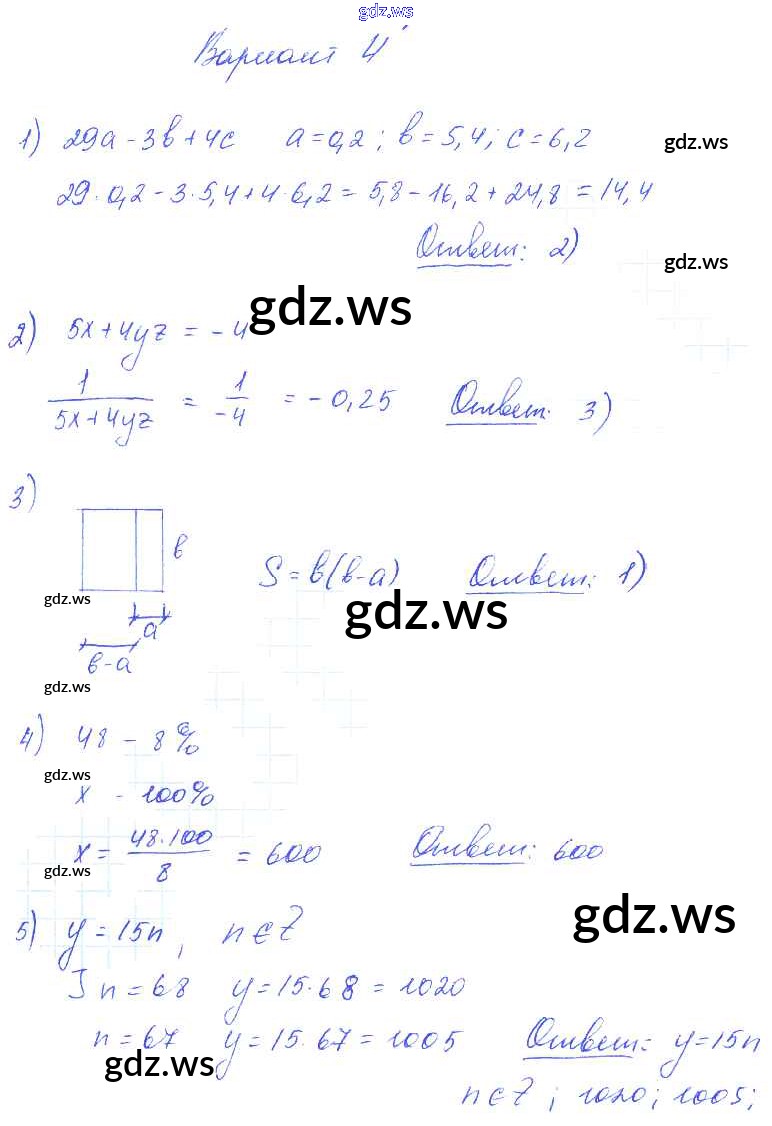 gdz.ws
Вариант 4
1) 29a - 3b + 4c   a = 0,2 ; b = 5,4 ; c = 6,2
gdz.ws
29 · 0,2 - 3 · 5,4 + 4 · 6,2 = 5,8 - 16,2 + 24,8 = 14,4
Ответ: 2)
gdz.ws
gdz.ws
2) 5x + 4yz = -4
1/(5x + 4yz) = 1/-4 = -0,25   Ответ: 3)
3)
в
S = в(в-а)   Ответ: 1)
gdz.ws
gdz.ws
а
в-а
gdz.ws
4) 48 - 8%
gdz.ws
x - 100%
x = 48·100/8 = 600   Ответ: 600
gdz.ws
gdz.ws
5) y = 15n, n∈Z
] n = 68   y = 15·68 = 1020
n = 67   y = 15·67 = 1005   Ответ: y = 15n
gdz.ws
n∈Z ; 1020; 1005;